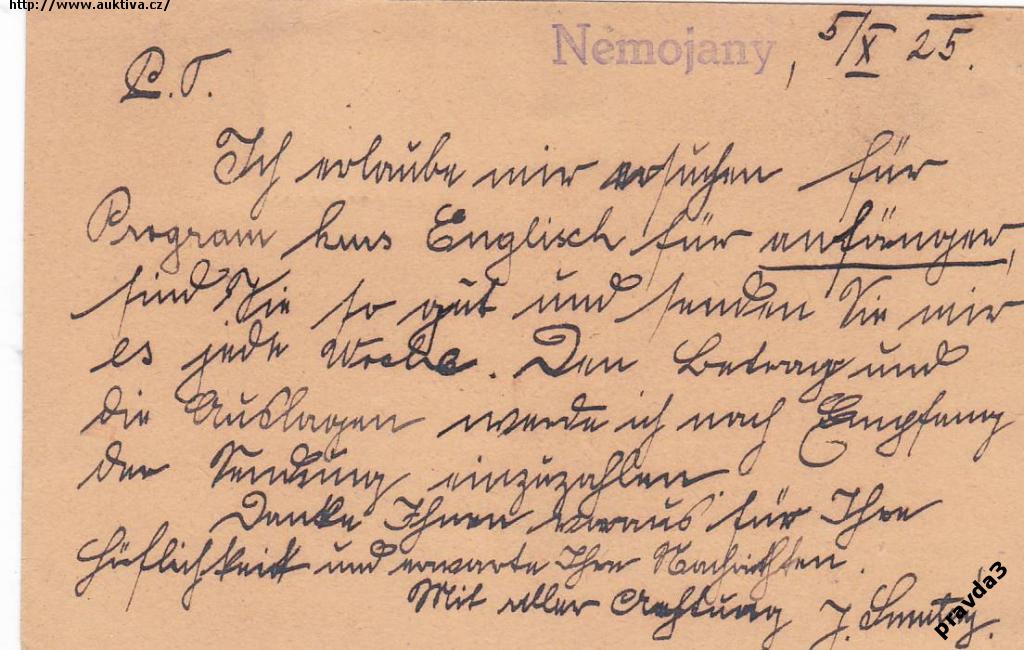 http://www.auktiva.cz/
Němojany, 5/X 25.
P.T.
Ich erlaube mir ersuchen für
Program kurs Englisch für anfänger,
sind Sie so gut und senden Sie mir
es jede Woche. Den Betrag und
die Auslagen werde ich nach Empfang
der Sendung einzuzahlen
Danke Ihnen voraus für Ihre
Höflichkeit und erwarte Ihre Nachrichten.
Mit aller Achtung J.
pravda3